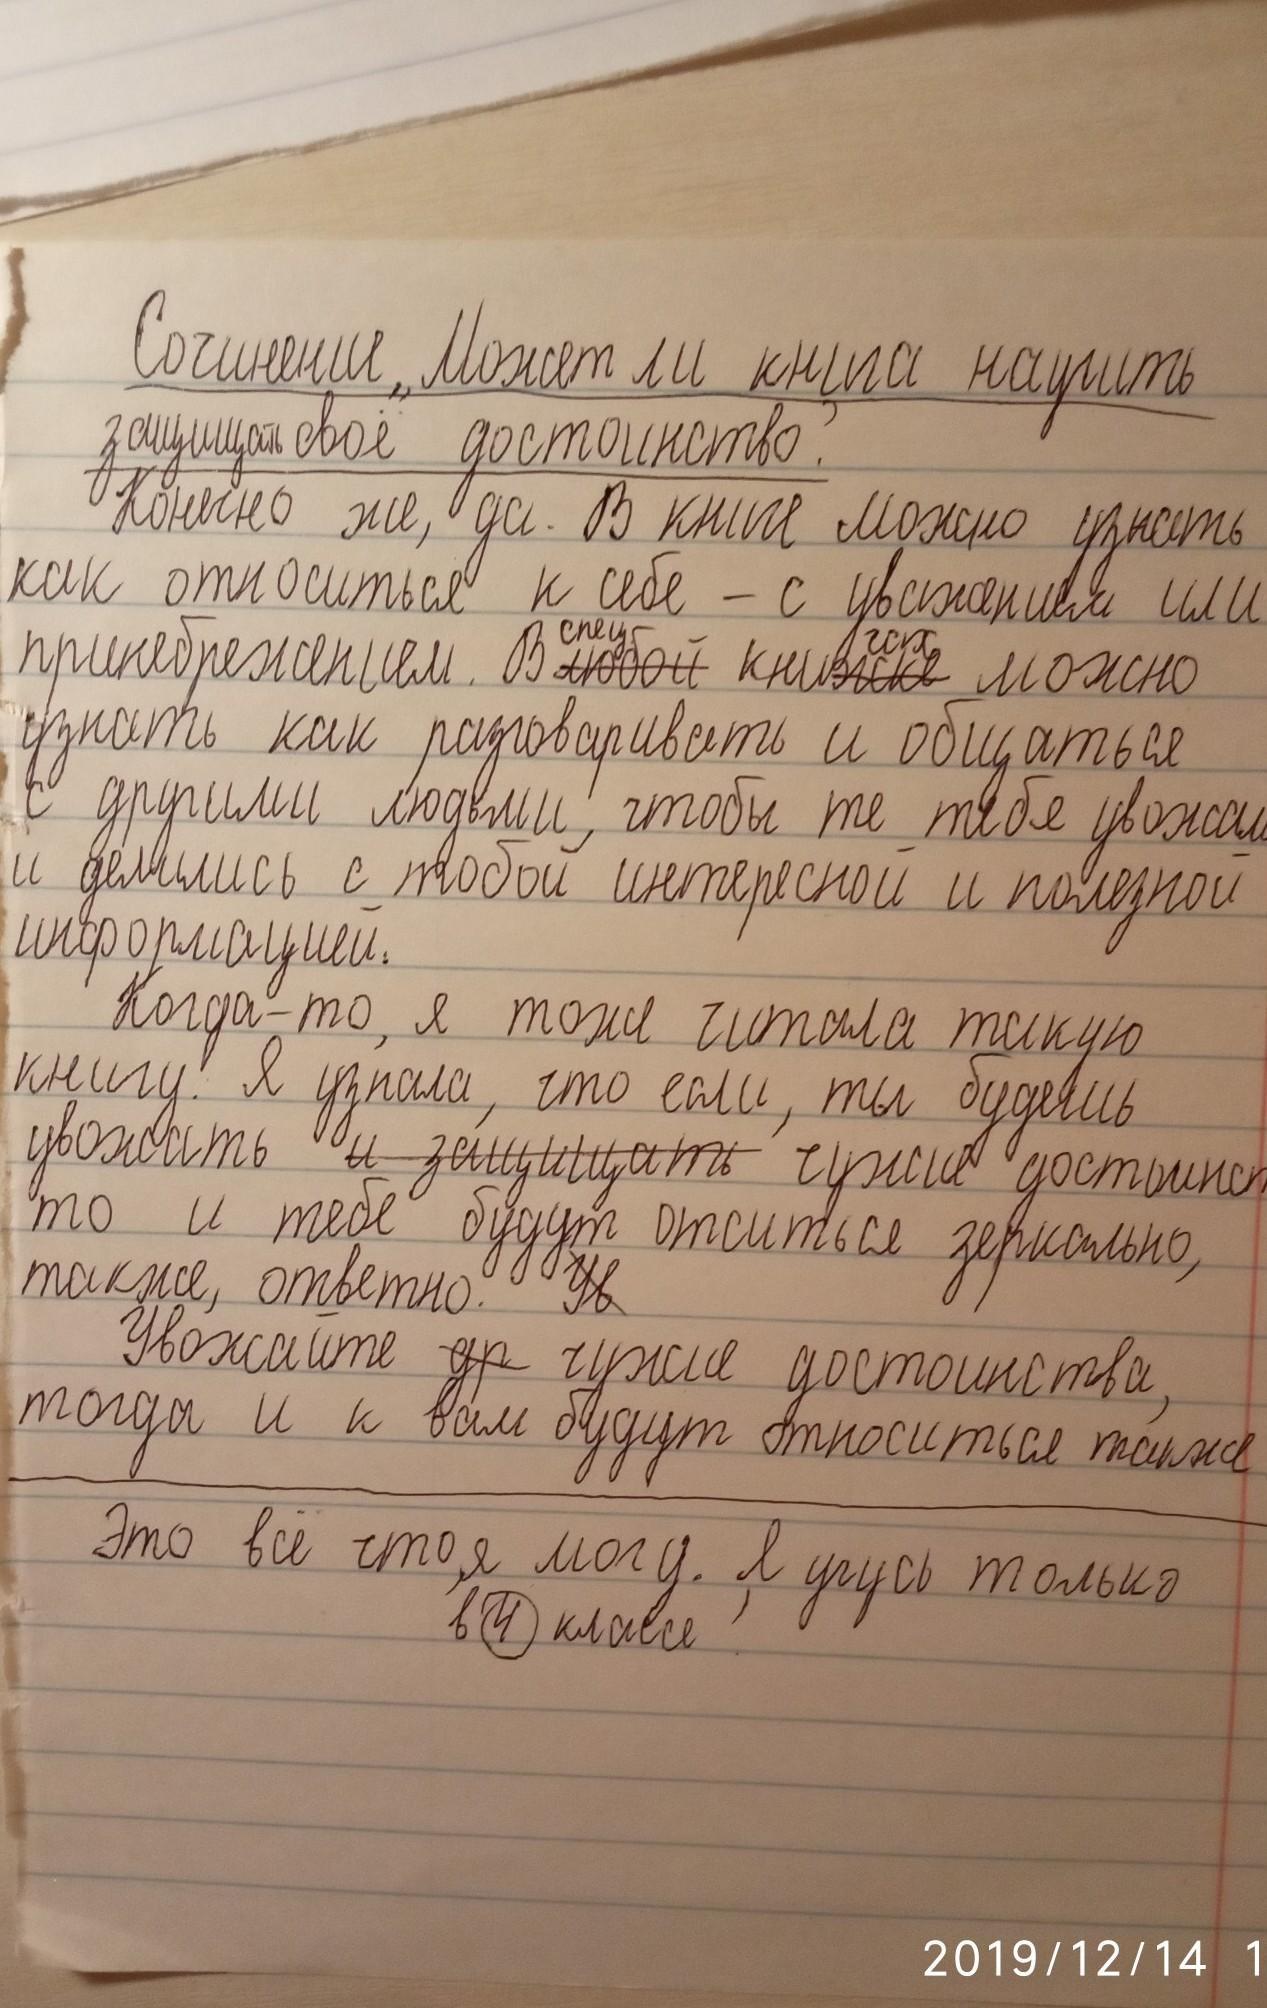 Сочинение „Может ли книга научить
защищать своё достоинство?
Конечно же, да. В книге можно узнать
как относиться к себе – с уважением или
принебрежением. В спец. любой книжке гах можно
узнать как разговаривать и общаться
с другими людьми, чтобы те тебя увожали
и делились с тобой интересной и полезной
информацией.
Когда-то, я тоже читала такую
книгу. Я узнала, что если, ты будешь
увожать и защищать чужие достоинст
то и тебе будут отситься зеркально,
также, ответно. Ув
Увожайте др чужие достоинства,
тогда и к вам будут относиться также
Это всё что, я могу. Я учусь только
в 4 классе
2019/12/14 1